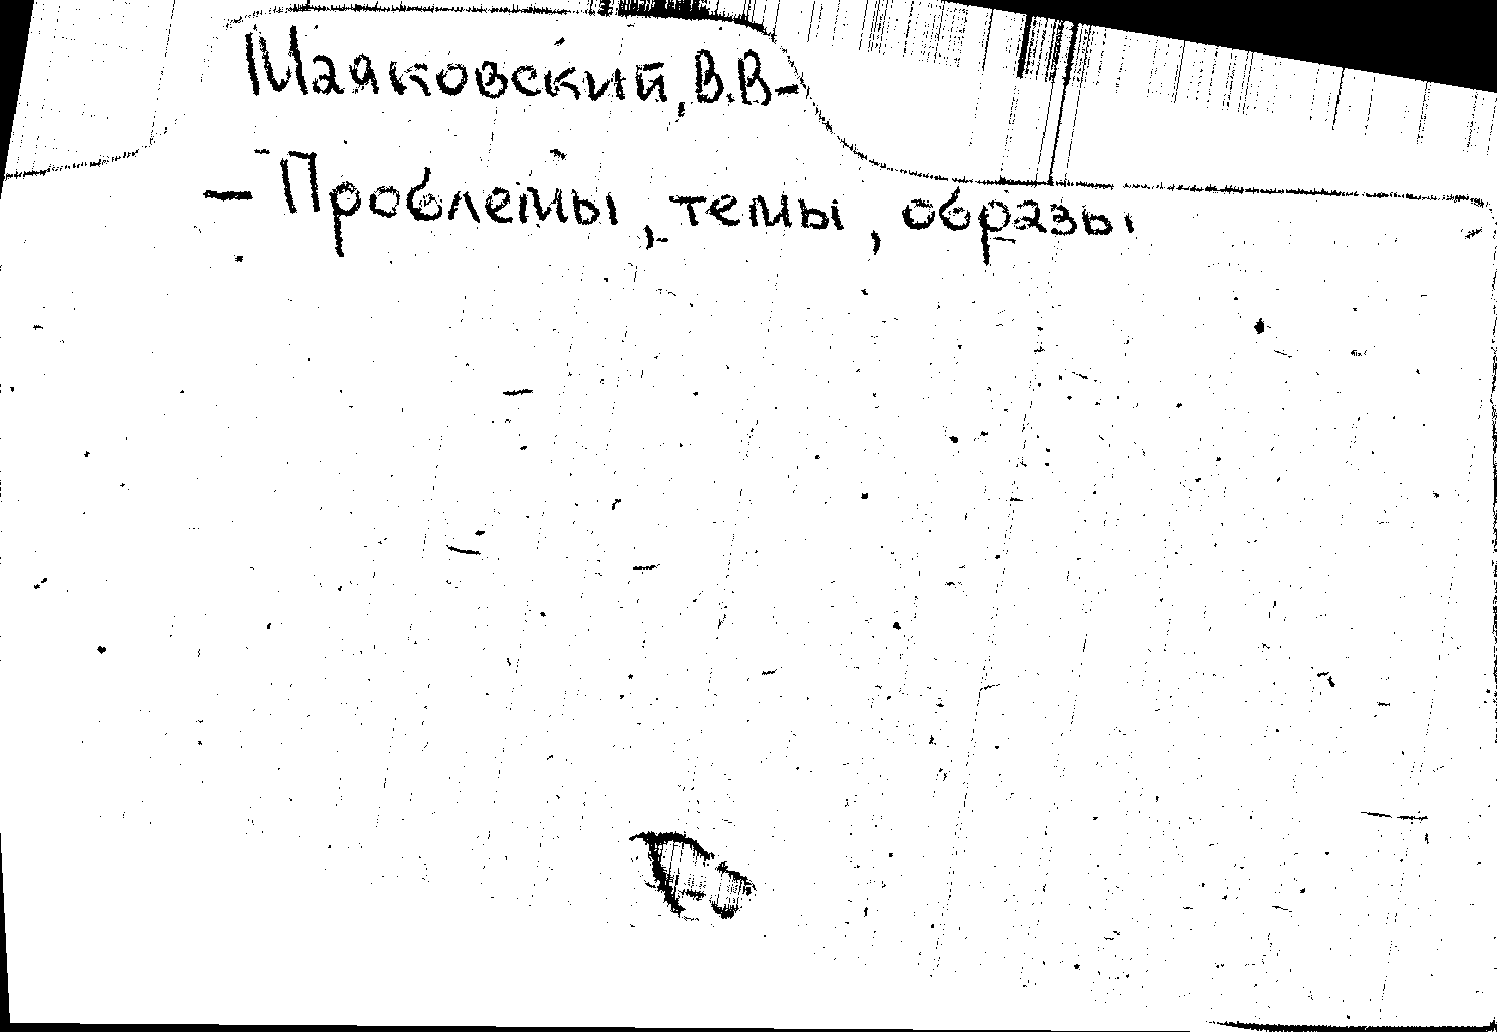 Маяковский, В.В–
– Проблемы, темы, образы